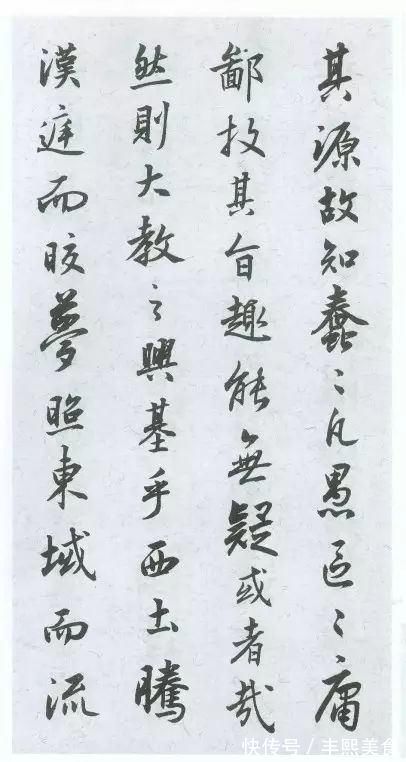 其源故知蠢〻凡愚區〻庸
鄙投其旨趣能無疑或者哉
然則大教之興基乎西土騰
漢庭而晈夢照東域而流
快传号 / 丰熙美食